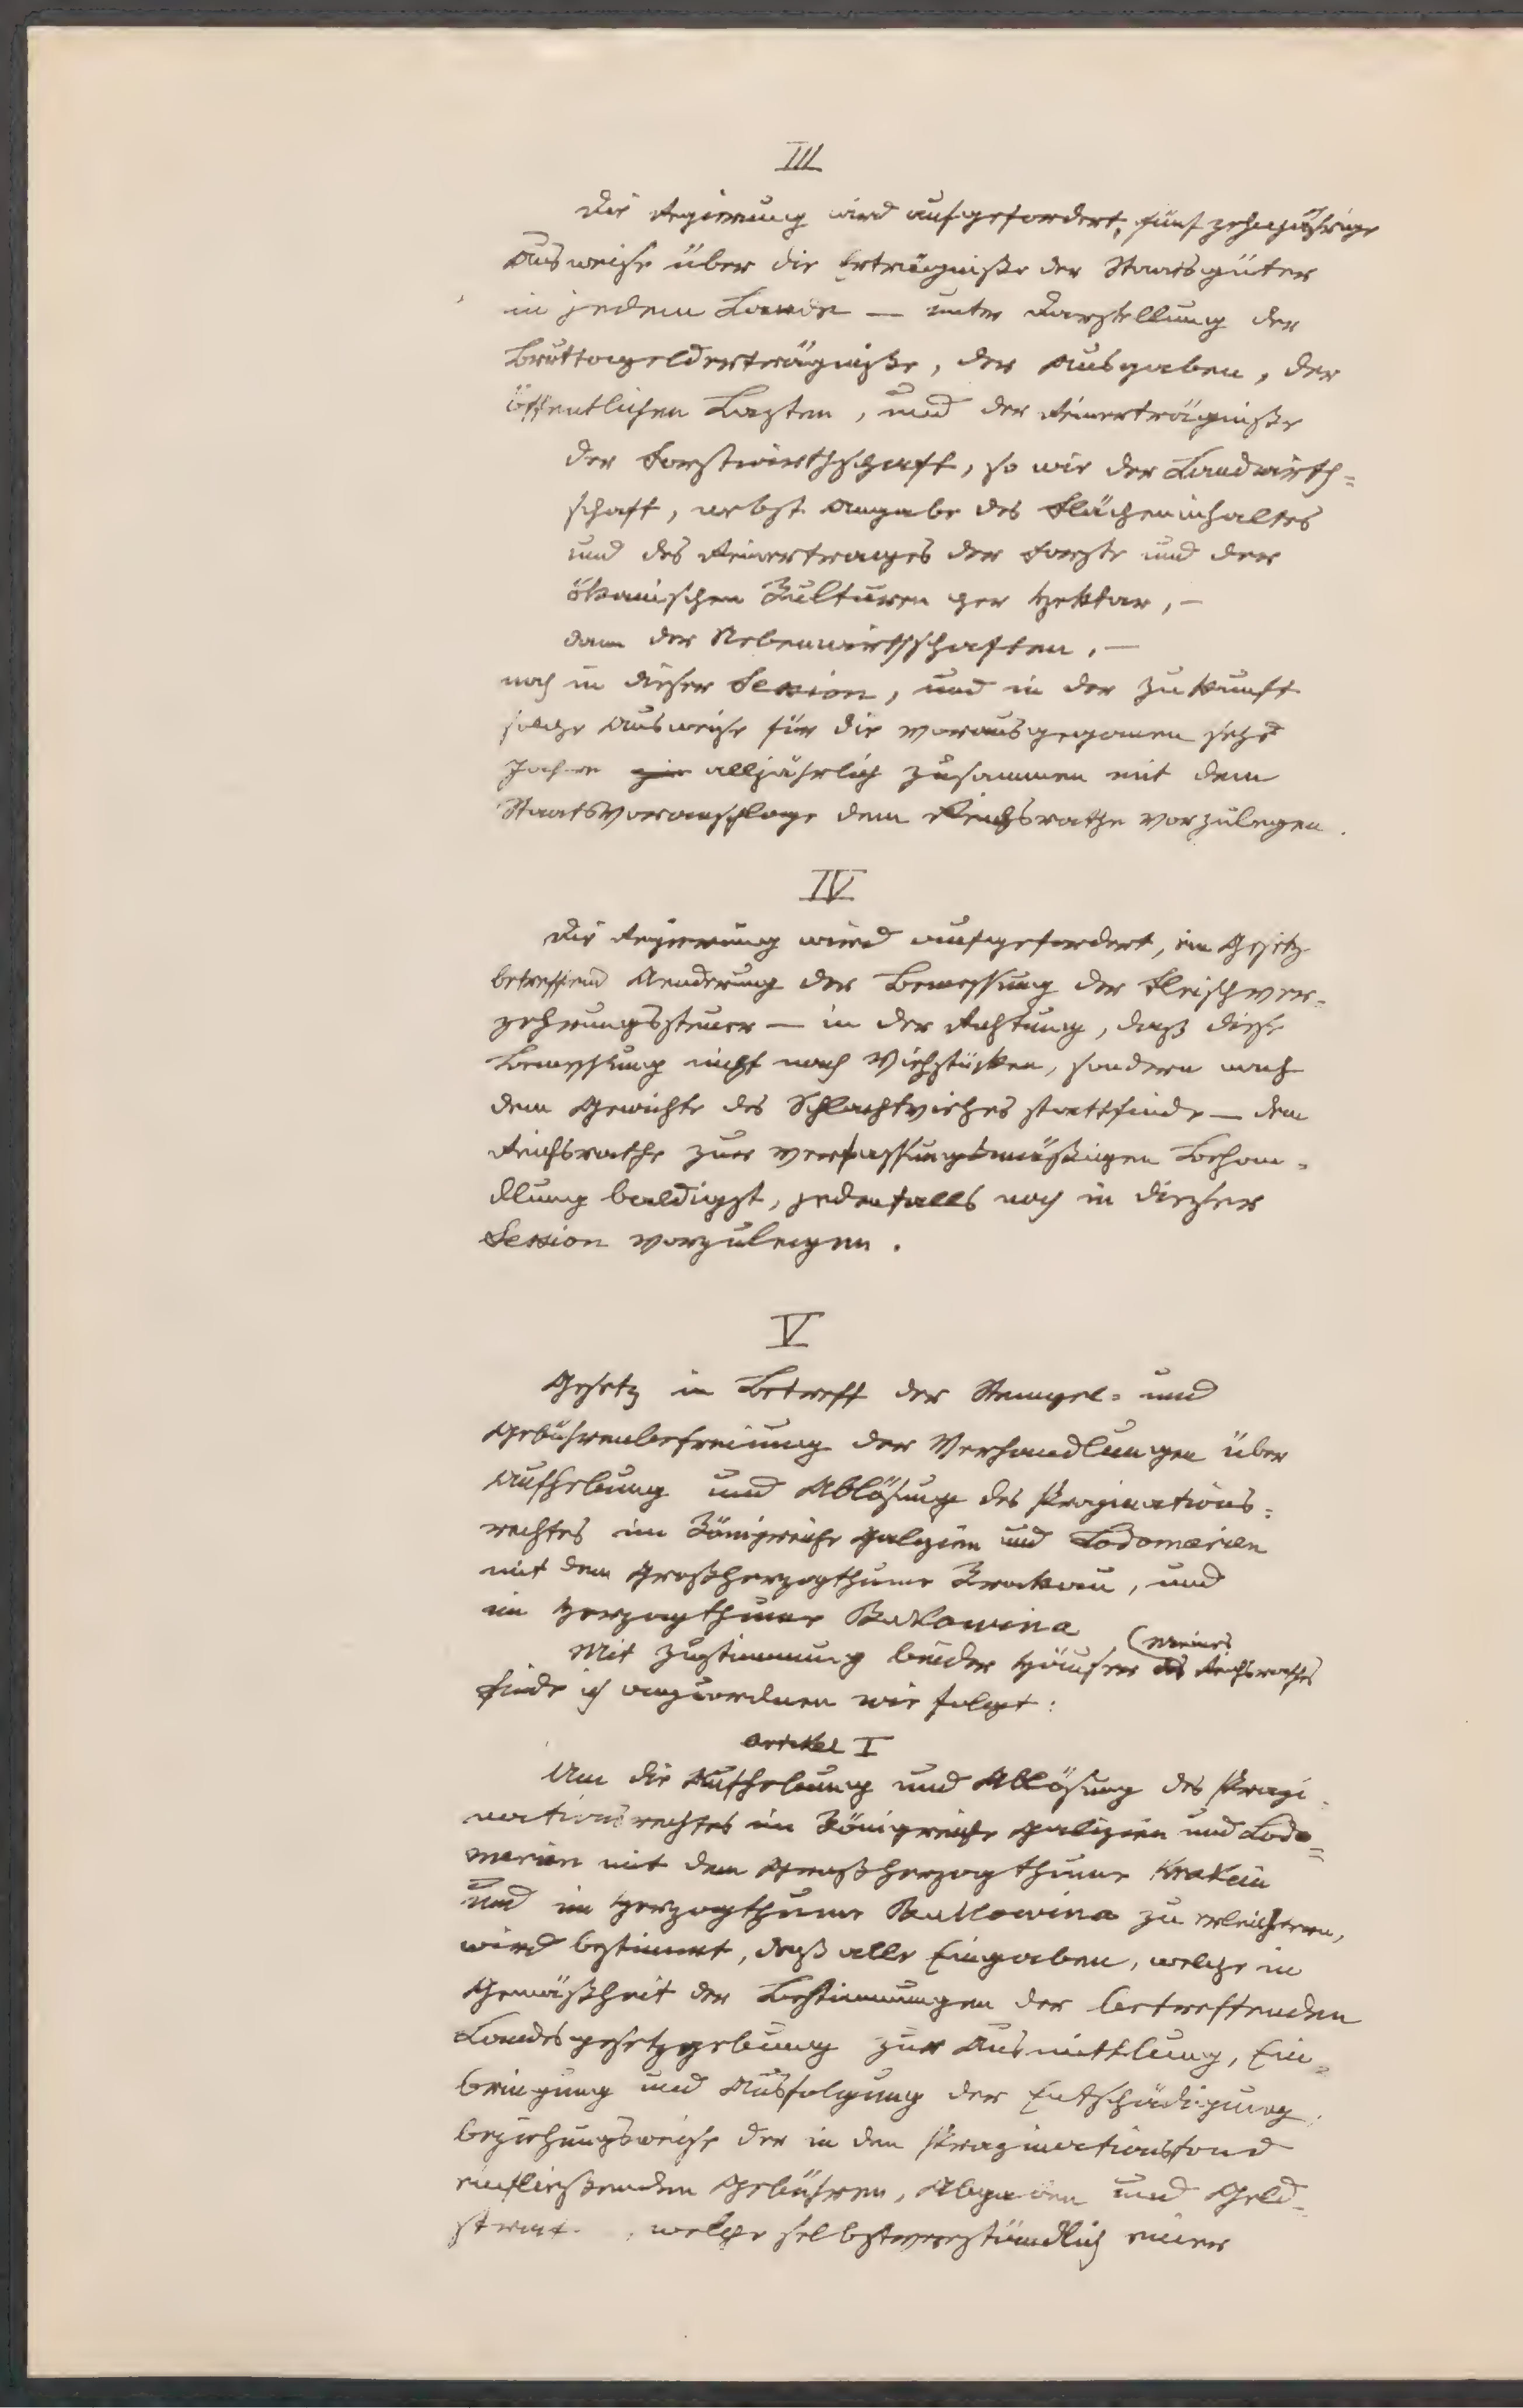 III
Die Regierung wird aufgefordert, fünfzehnjährige
Ausweise über die Erträgniße der Staatsgüter
in jedem Lande — unter Darstellung der
Bruttogelderträgniße, der Ausgaben, der
öffentlichen Lasten, und der Reinerträgniße
der Forstwirthschaft, so wie der Landwirth=
schaft, nebst Angabe des Flächeninhaltes
und des Reinertrages der Forste und der
ökonischen Kulturen per Hektar, —
dann der Nebenwirthschaften, —
noch in dieser Session, und in der Zukunft
solche Ausweise für die vorausgegangenen sechs
Jahre alljährlich zusammen mit dem
Staatsvoranschlage dem Reichsrathe vorzulegen.
IV
Die Regierung wird aufgefordert, ein Gesetz
betreffend Aenderung der Bemessung der Fleischver=
zehrungssteuer — in der Richtung, daß diese
Bemessung nicht nach Viehstücken, sondern nach
dem Gewichte des Schlachtviehes stattfinde — dem
Reichsrathe zur verfassungsmäßigen Behan=
dlung baldigst, jedenfalls noch in dieser
Session vorzulegen.
V
Gesetz in Betreff der Stempel= und
Gebührenbefreiung der Verhandlungen über
Aufhebung und Ablösung des Propinations=
rechtes im Königreiche Galizien und Lodomerien
mit dem Großherzogthume Krakau, und
im Herzogthume Bukowina
Mit Zustimmung beider Häuser (meines des Reichsrathes
finde ich anzuordnen wie folgt:
Artikel I
Um die Aufhebung und Ablösung des Propi=
nationsrechtes im Königreiche Galizien und Lodo=
merien mit dem Großherzogthume Krakau
und im Herzogthume Bukowina zu erleichtern,
wird bestimmt, daß alle Eingaben, welche in
Gemäßheit der Bestimmungen der betreffenden
Landesgesetzgebung zur Ausmittlung, Ein=
bringung und Ausfolgung der Entschädigung,
beziehungsweise der in den Propinationsfond
einfließenden Gebühren, Abgaben und Geld=
, welche selbstverständlich einer